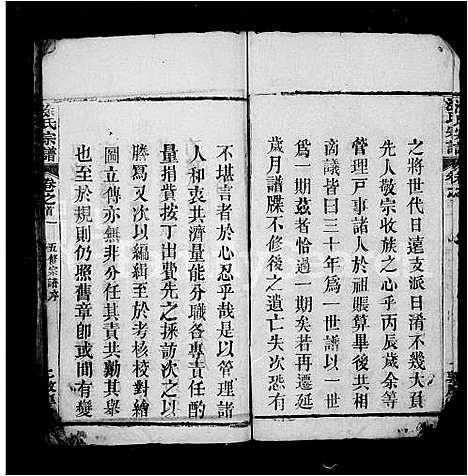 之將世代日遠支派日淆不幾大負
先人敬宗收族之心乎丙辰歲余等
管理戶事諸人於祖賬算畢後共相
商議皆曰三十年爲一世譜以一世
爲一期茲者恰過一期矣若再遷延
歲月譜牒不修後之遺亡失次恐有
不堪言者於心忍乎哉是以管理諸
人和衷共濟量能分職各專責任酌
量捐貲按丁出費先之採訪次之以
謄寫又次以編緝至於考核校對繪
圖立傳亦無非分任其責共勷其舉
也至於規則仍照舊章卽或間有變
氏宗譜
卷之首
五修宗譜序